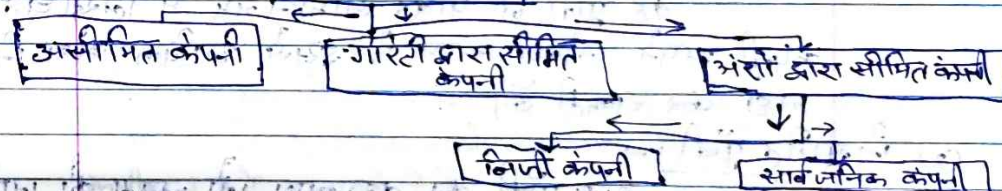 असीमित कंपनी
गारंटी द्वारा सीमित
कंपनी
अंशों द्वारा सीमित कंपनी
निजी कंपनी
सार्वजनिक कंपनी